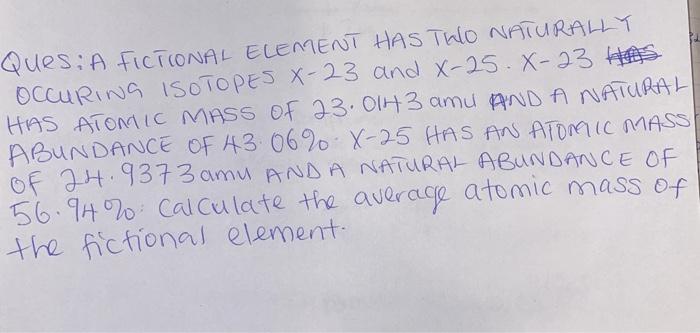 Ques: A FICTIONAL ELEMENT HAS TWO NATURALLY
OCCURING ISOTOPES X-23 and X-25. X-23
HAS ATOMIC MASS OF 23.0143 amu AND A NATURAL
ABUNDANCE OF 43.06%. X-25 HAS AN ATOMIC MASS
OF 24.9373 amu AND A NATURAL ABUNDANCE OF
56.94%. Calculate the average atomic mass of
the fictional element.